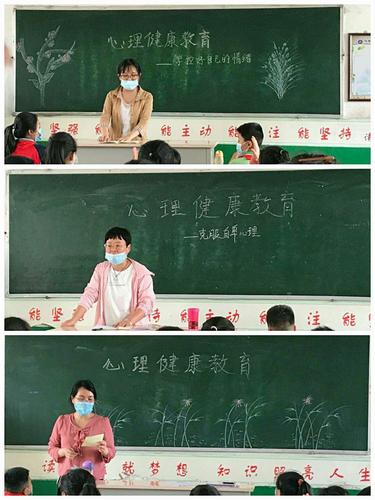 心理健康教育
——掌控好自己的情绪
坚强 能 能主动 能 注 能坚持
心理健康教育
——克服自卑心理
能坚 持 能主动 能 注 能
心理健康教育
读 就梦想 知识照亮人生